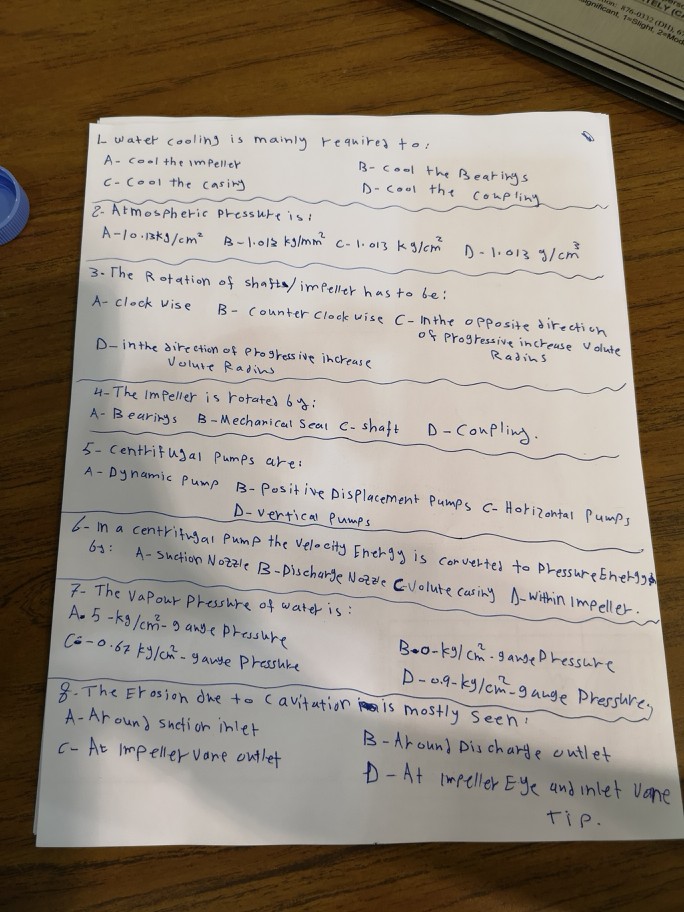 ELY (CA
tion: 876-0332 (DH), 6
ignificant, 1=Slight, 2=Mod
1- water cooling is mainly required to:
A- cool the impeller B- cool the Bearings
C- Cool the casing D- cool the coupling
2- Atmospheric Pressure is:
A-10.13kg/cm² B-1.013 kg/mm² C-1.013 kg/cm² D-1.013 g/cm³
3- The Rotation of shaft/impeller has to be:
A- clock wise B- counter clock wise C- In the opposite direction
of Progressive increase Volute
Radius
D- in the direction of Progressive increase
Volute Radius
4- The Impeller is rotated by:
A- Bearings B-Mechanical Seal C- shaft D- Coupling.
5- Centrifugal Pumps are:
A- Dynamic Pump B- Positive Displacement Pumps C- Horizontal Pumps
D- Vertical Pumps
6- In a centrifugal Pump the Velocity Energy is converted to Pressure Energy
by: A- Suction Nozzle B-Discharge Nozzle C Volute casing D-within Impeller.
7- The Vapour Pressure of water is:
A. 5 -kg/cm²-gauge Pressure B-0-kg/cm²-gauge Pressure
C-0.67 kg/cm²-gauge Pressure D-0.9-kg/cm²-gauge Pressure.
8- The Erosion due to Cavitation is mostly seen:
A- Around suction inlet B- Around Discharge outlet
C- At Impeller Vane outlet D- At Impeller Eye and inlet Vane
Tip.